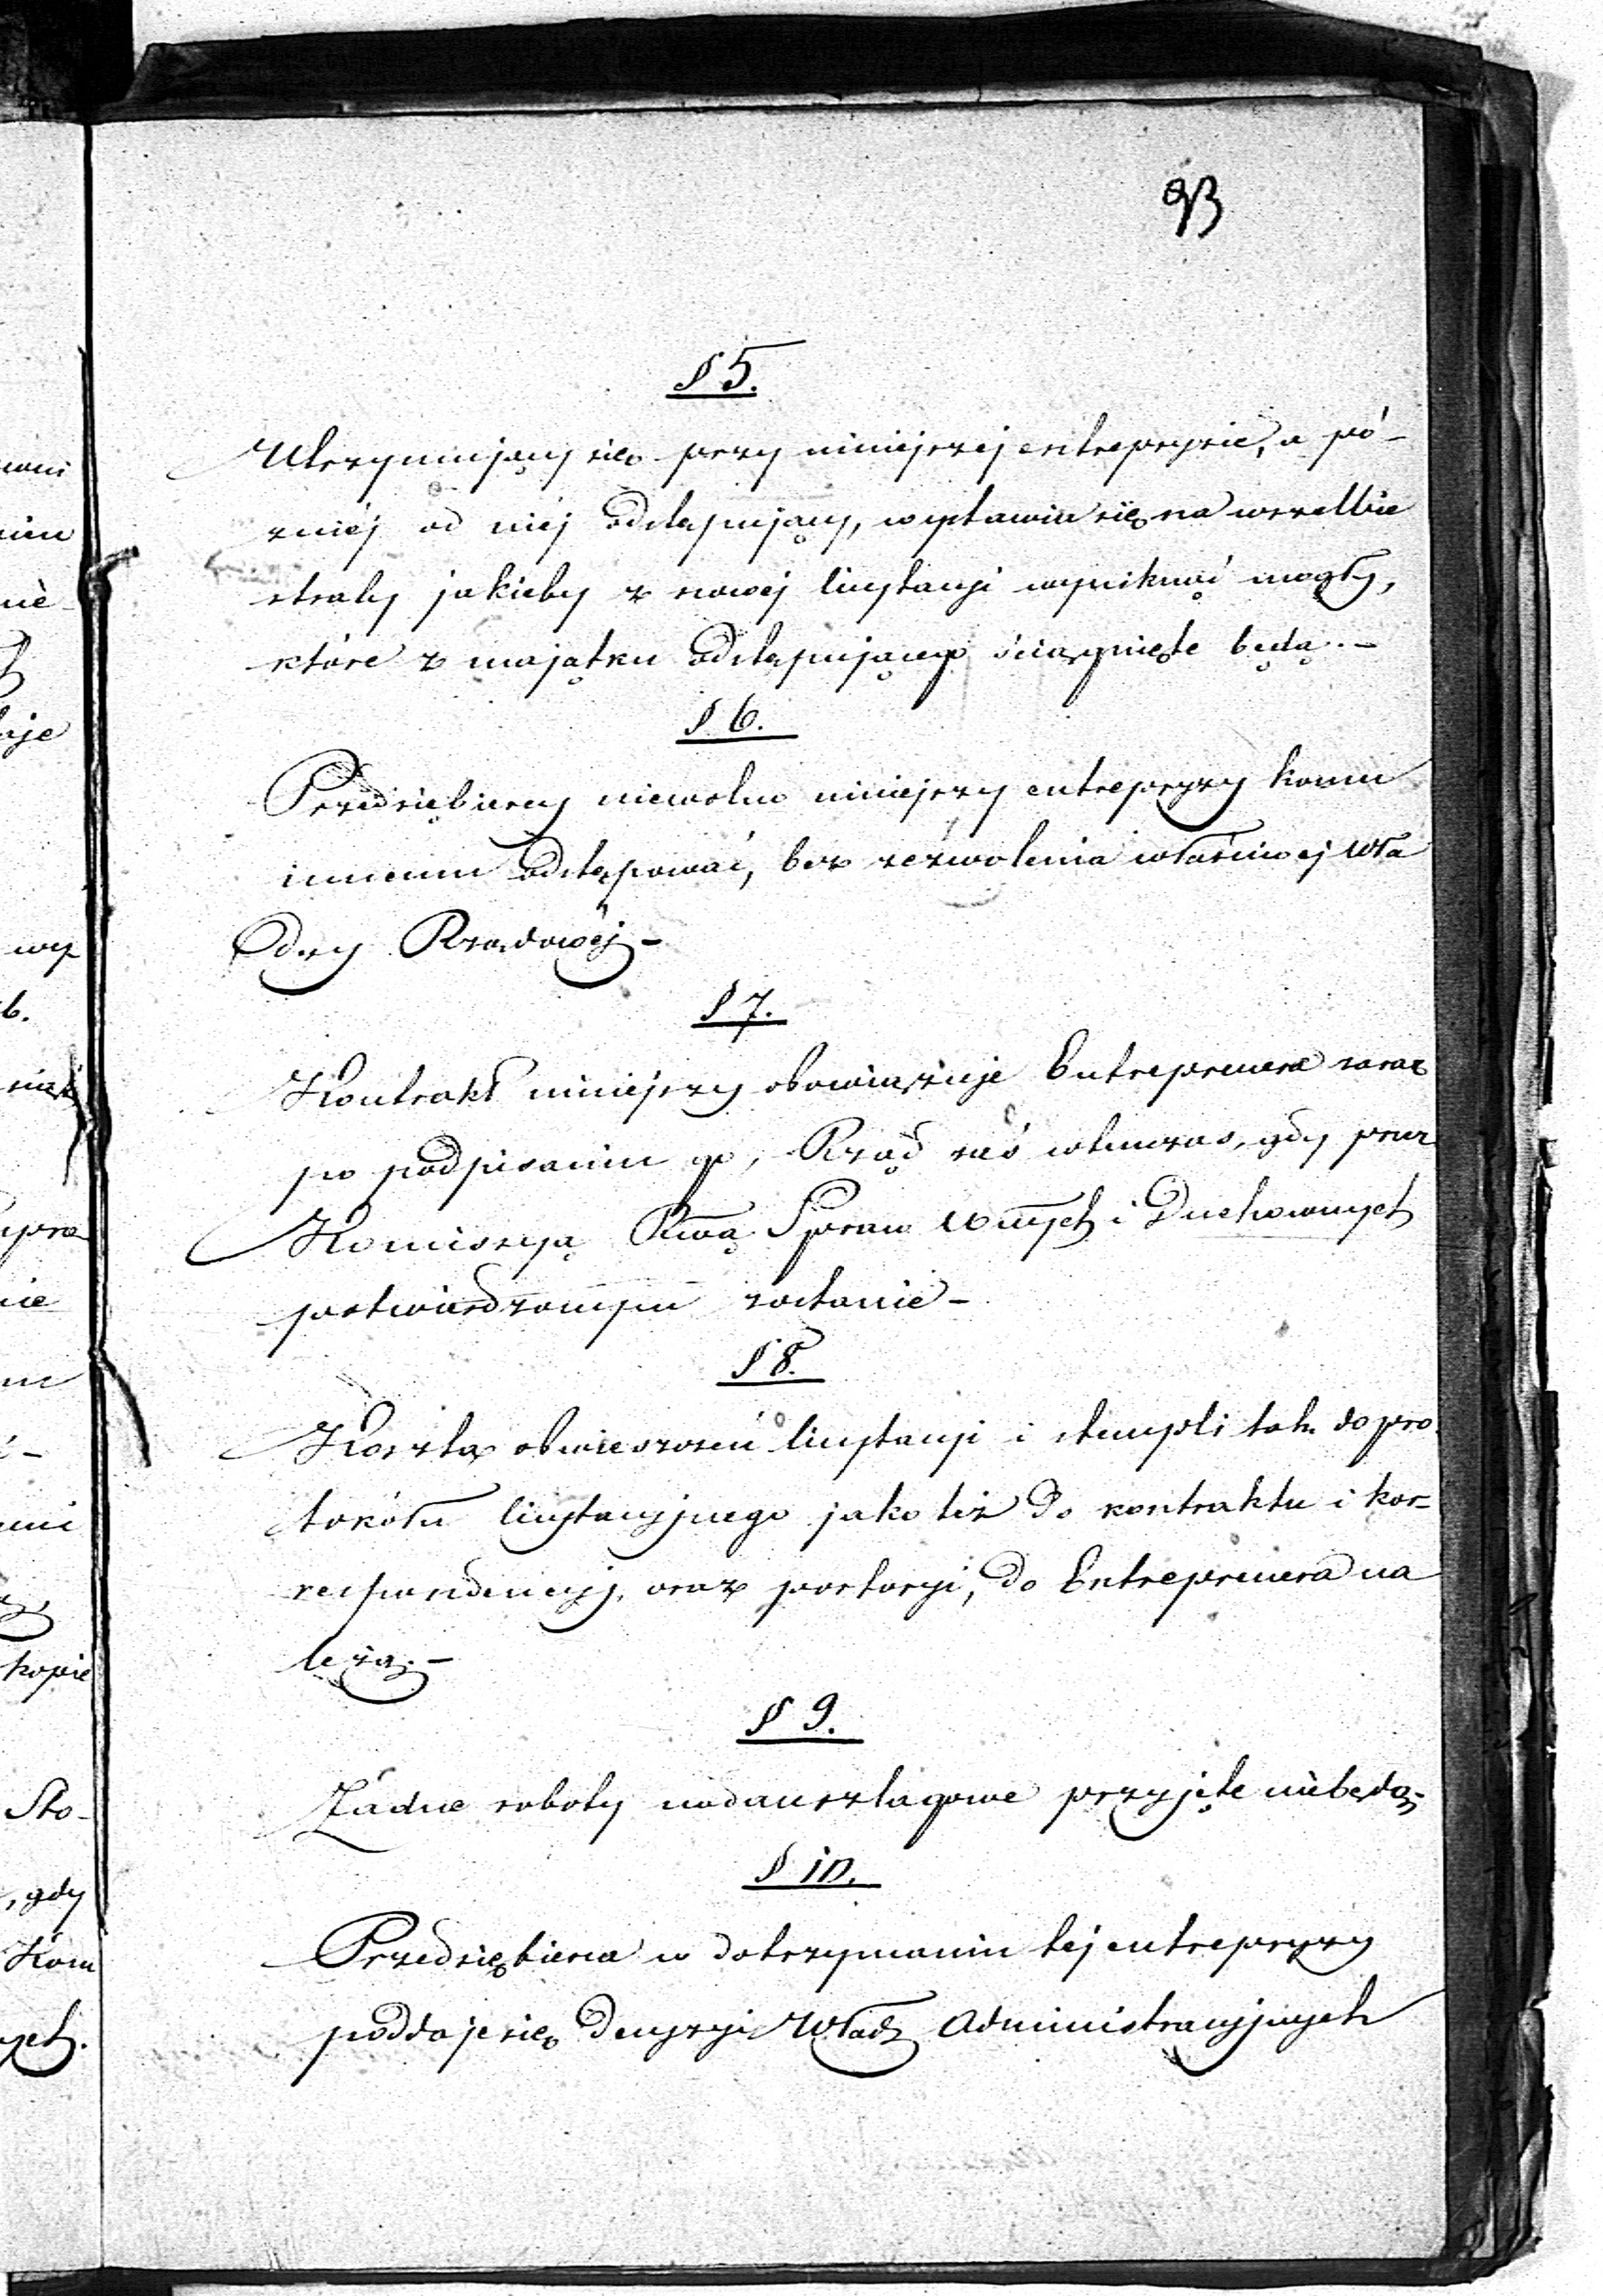 93
§ 5.
Utrzymujący się przy niniejszej entrepryzie, a pó-
zniéj od niej odstępujący, wystawia się na wszelkie
straty jakieby z nowej licytacyi wyniknąć mogły,
które z majątku odstępującego ściągnięte będą.-
§ 6.
Przedsiębiercy niewolno niniejszy entrepryzy komu
innemu odstępować, bez zezwolenia właściwej Wła
dzy Rządowéj-
§ 7.
Kontrakt niniejszy obowiązuje Entreprenera zaraz
po podpisaniu go, Rząd zaś wtenczas, gdy przez
Komissyą Rwą Spraw Wnych i Duchownych
potwierdzonym zostanie-
§ 8.
Koszta obwieszczeń licytacyi i stempli tak do pro
tokółu licytacyjnego jako też do kontraktu i kor-
respondencyj, oraz portoryi, do Entreprenera na
leżą.-
§ 9.
Żadne roboty nadanszlagowe przyjęte niebędą-
§ 10.
Przedsiębierca w dotrzymaniu tej entrepryzy
poddaje się decyzyi Władz Administracyjnych
wy
b.
aje
nie
kopie
Sto-
, gdy
Kom
ych.